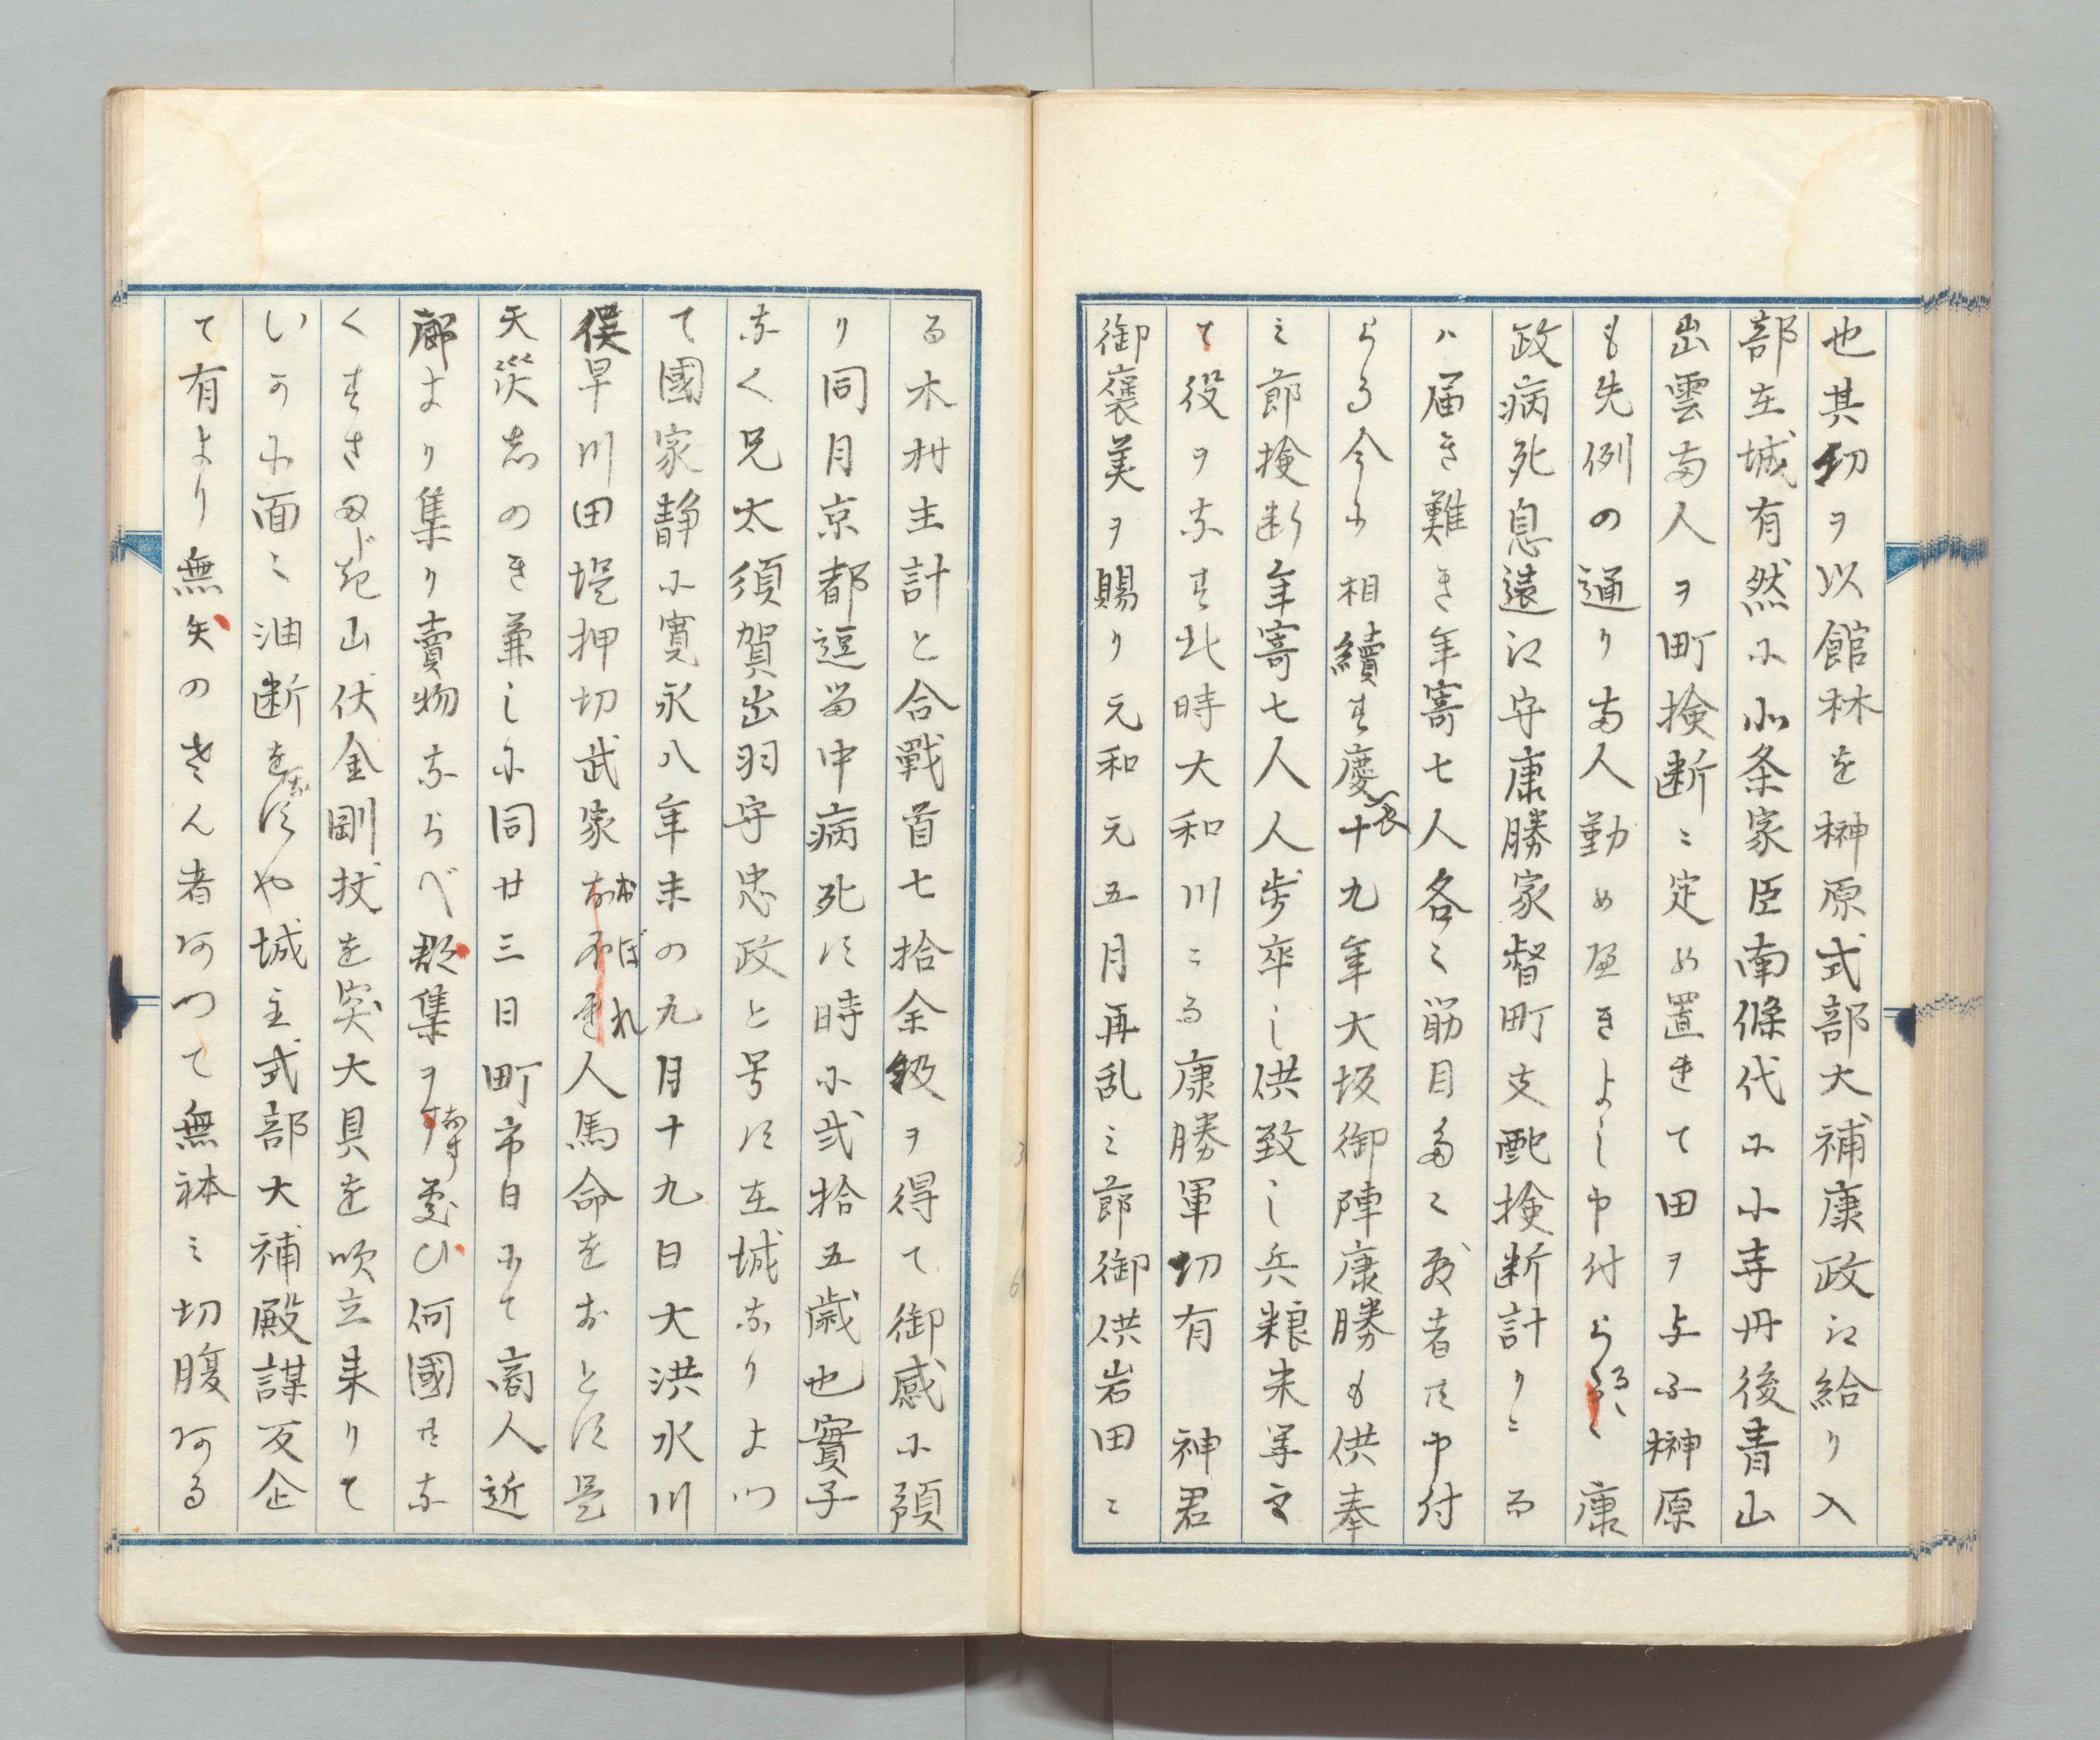 也其切ヲ以館林を榊原式部大補康政江給り入
部在城有然ニ小条家臣南條代ニ小寺丹後青山
出雲両人ヲ町検断ミ定め置きて田ヲ与ふ榊原
も先例の通り両人勤め可きよし申付らる 康
政病死息遠江守康勝家督町支配検断計りニ而
ハ届き難き年寄七人各ミ筋目ミ者共申付
らる今ニ相續す慶長十九年大坂御陣康勝も供奉
ミ節検断年寄七人人歩卒し供致し兵粮米
て役ヲなす此時大和川ニ而康勝軍切有 神君
御褒美ヲ賜り元和元五月再乱ミ節御供岩田ニ
る木村主計と合戰首七拾余級ヲ得て御感ニ預
り同月京都逗留中病死す時ニ弐拾五歳也實子
なく兄太須賀出羽守忠政と号す在城なりよつ
て國家静ニ寛永八年末の九月十九日大洪水川
俣早川田堤押切武家おぼれ人馬命をおとす是
天災志のき兼しニ同廿三日町市日ニて商人近
郷より集り賣物ならべ群集ヲなす處ひ何國共な
くすさまじき山伏金剛杖を突大具を吹立来りて
いかニ面ミ油断をなすや城主式部大補殿謀反企
て有より無失のさん者阿つて無袮ミ切腹阿る